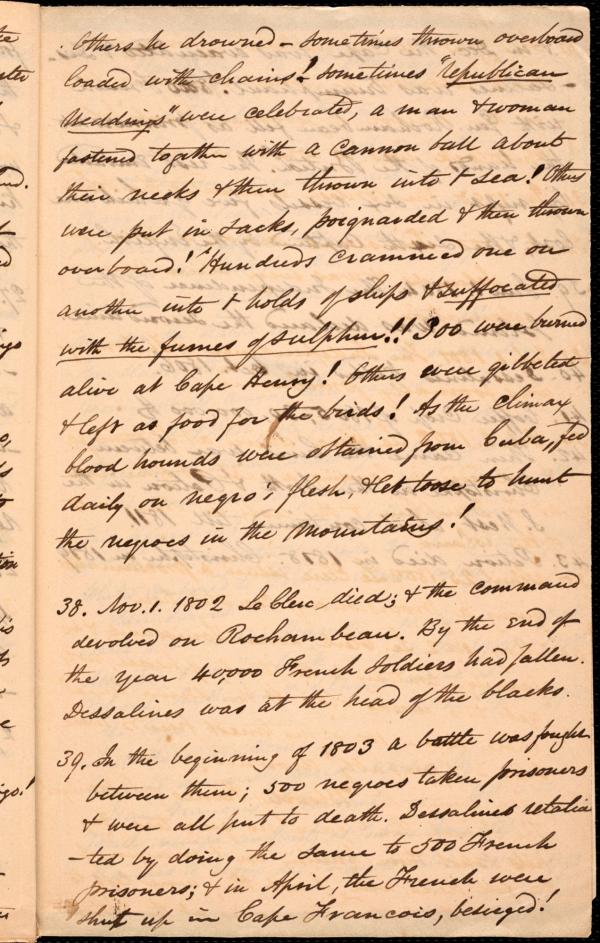 Others he drowned – sometimes thrown overboard
loaded with chains! – sometimes "republican
weddings" were celebrated, a man & woman
fastened together with a cannon ball about
their necks & then thrown into t sea! Others
were put in sacks, poignarded & then thrown
overboard! Hundreds crammed one on
another into t holds of ships & suffocated
with the fumes of sulphur!! 300 were burned
alive at Cape Henry! Others were gibbeted
& left as food for the birds! As the climax
blood hounds were obtained from Cuba, fed
daily on negro's flesh, & let loose to hunt
the negroes in the mountains!
38. Nov. 1. 1802 Le Clerc died; & the command
devolved on Rochambeau. By the end of
the year 40,000 French soldiers had fallen.
Dessalines was at the head of the blacks.
39. In the beginning of 1803 a battle was fought
between them; 500 negroes taken prisoners
& were all put to death. Dessalines retalia
-ted by doing the same to 500 French
prisoners; & in April, the French were
shut up in Cape Francois, besieged!